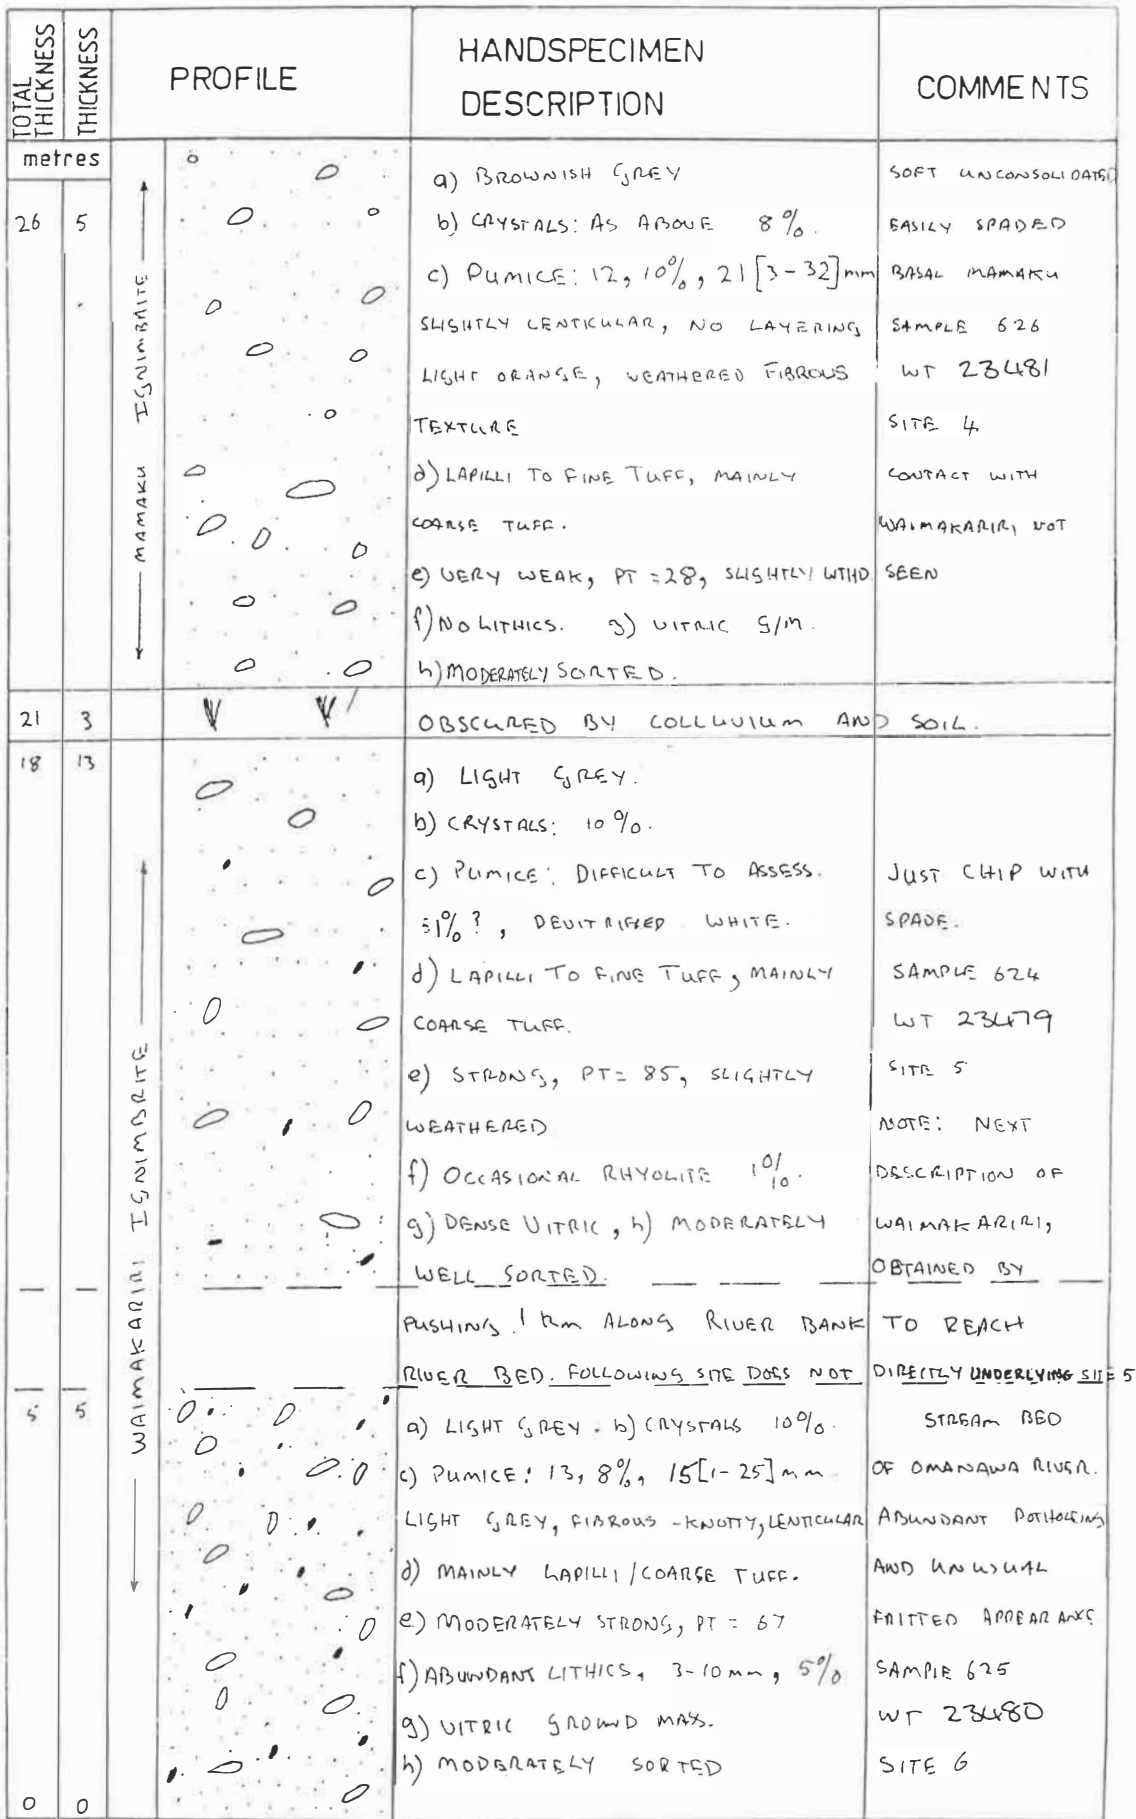 TOTAL THICKNESS
THICKNESS
PROFILE
HANDSPECIMEN
DESCRIPTION
COMMENTS
metres
26 5
MAMAKU IGNIMBRITE
a) BROWNISH GREY
b) CRYSTALS: AS ABOVE 8%.
c) PUMICE: 12, 10%, 21 [3-32] mm
SLIGHTLY LENTICULAR, NO LAYERING
LIGHT ORANGE, WEATHERED FIBROUS
TEXTURE
d) LAPILLI TO FINE TUFF, MAINLY
COARSE TUFF.
e) VERY WEAK, PT = 28, SLIGHTLY WTHD
f) NO LITHICS. g) VITRIC G/M.
h) MODERATELY SORTED.
SOFT UNCONSOLIDATED
EASILY SPADED
BASAL MAMAKU
SAMPLE 626
WT 23481
SITE 4
CONTACT WITH
WAIMAKARIRI NOT
SEEN
21 3
OBSCURED BY COLLUVIUM AND SOIL.
18 13
WAIMAKARIRI IGNIMBRITE
a) LIGHT GREY.
b) CRYSTALS: 10%.
c) PUMICE: DIFFICULT TO ASSESS.
1%?, DEVITRIFIED WHITE.
d) LAPILLI TO FINE TUFF, MAINLY
COARSE TUFF.
e) STRONG, PT = 85, SLIGHTLY
WEATHERED
f) OCCASIONAL RHYOLITE 1%.
g) DENSE VITRIC, h) MODERATELY
WELL SORTED.
JUST CHIP WITH
SPADE.
SAMPLE 624
WT 23479
SITE 5
NOTE: NEXT
DESCRIPTION OF
WAIMAKARIRI,
OBTAINED BY
PUSHING 1 km ALONG RIVER BANK TO REACH
RIVER BED. FOLLOWING SITE DOES NOT DIRECTLY UNDERLYING SITE 5
5 5
a) LIGHT GREY. b) CRYSTALS 10%.
c) PUMICE: 13, 8%, 15 [1-25] mm
LIGHT GREY, FIBROUS - KNOTTY, LENTICULAR
d) MAINLY LAPILLI / COARSE TUFF.
e) MODERATELY STRONG, PT = 67
f) ABUNDANT LITHICS, 3-10 mm, 5%
g) VITRIC GROUND MASS.
h) MODERATELY SORTED
STREAM BED
OF OMANAWA RIVER.
ABUNDANT POTHOLEING
AND UNUSUAL
FRITTED APPEARANCE
SAMPLE 625
WT 23480
SITE 6
0 0